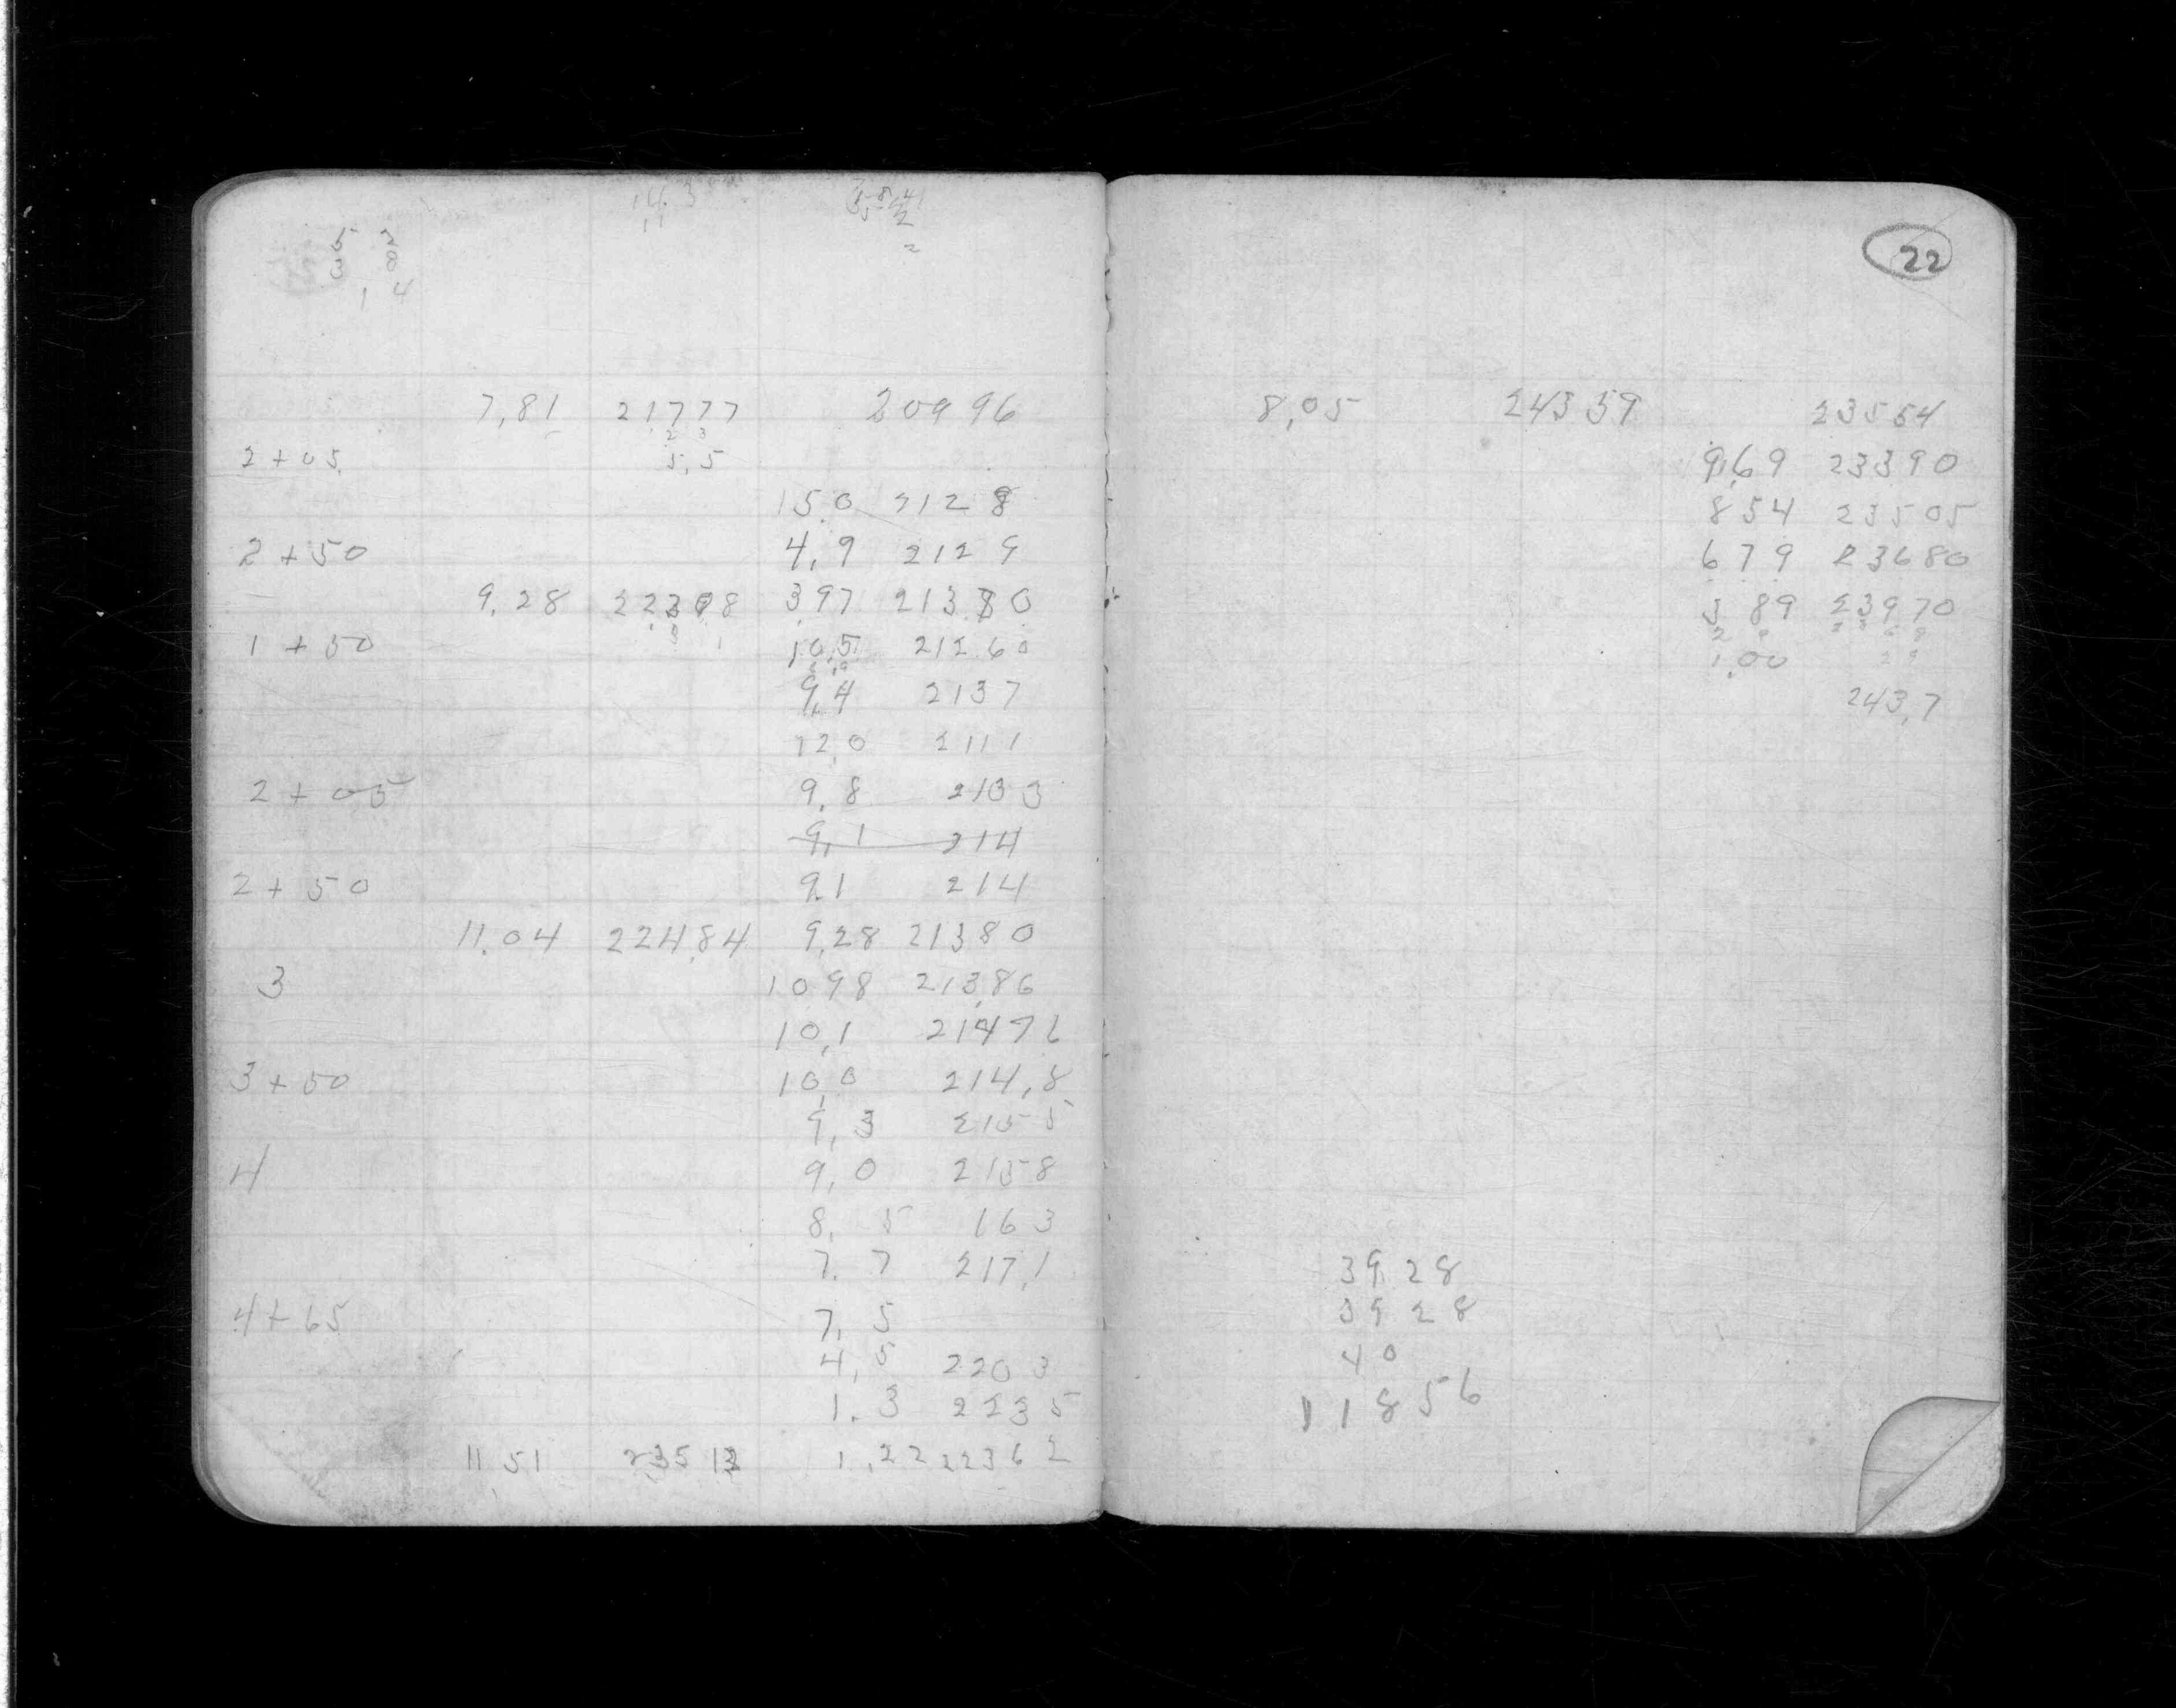 5 2
3 8
1 4
7,81 21777 20996
2+05 5,5
15.0 2128
2+50 4,9 2129
9.28 22308 3 97 21380
1+50 10,5 21260
9,4 2137
12,0 2111
2+05 9,8 2133
9,1 214
2+50 9.1 214
11.04 22484 9.28 21380
3 10 98 21386
10,1 21476
3+50 10,0 214,8
9,3 2155
4 9,0 2158
8, 5 163
7. 7 217,1
4+65 7, 5
4, 5 220 3
1. 3 223 5
11 51 23513 1,22 22362
22
8,05 24359 23554
9,69 23390
8 54 23505
6 79 23680
3 89 23970
1,00
243,7
39 28
39 28
40
11856